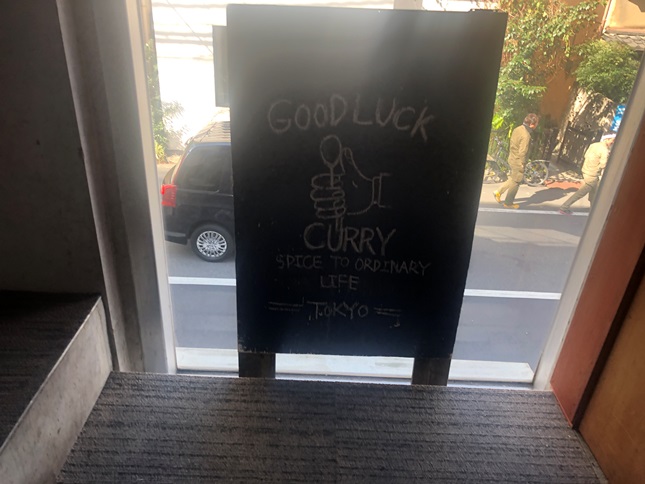 GOOD LUCK
CURRY
SPICE TO ORDINARY
LIFE
TOKYO